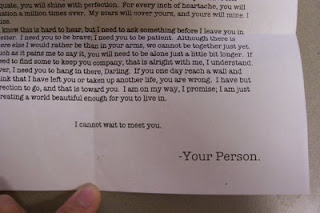 quate, you will shine with perfection. For every inch of heartache, you will
ation a million times over. My scars will cover yours, and yours will mine. I
ise.
know this is hard to hear, but I need to ask something before I leave you in
etter. I need you to be brave; I need you to be patient. Although there is
here else I would rather be than in your arms, we cannot be together just yet.
uch as it pains me to say it, you will need to be alone just a little bit longer. If
eed to find some to keep you company, that is alright with me, I understand.
ver, I need you to hang in there, Darling. If you one day reach a wall and
hink that I have left you or taken up another life, you are wrong. I have but
rection to go, and that is toward you. I am on my way, I promise; I am just
reating a world beautiful enough for you to live in.
I cannot wait to meet you.
-Your Person.